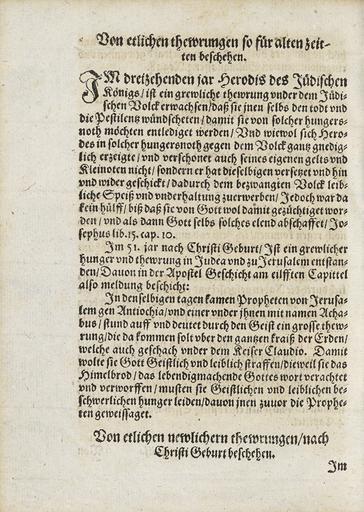 Von etlichen thewrungen so für alten zeit-
ten beschehen.
IM dreizehenden jar Herodis des Jüdischen
Königs / ist ein grewliche thewrung vnder dem Jüdi-
schen Volck erwachsen / daß sie jnen selbs den todt vnd
die Pestilentz wündscheten / damit sie von solcher hungers-
noth möchten entlediget werden / Vnd wiewol sich Hero-
des in solcher hungersnoth gegen dem Volck gantz gnedig-
lich erzeigte / vnd verschonet auch seines eigenen gelts vnd
Kleinoten nicht / sondern er hat dieselbigen versetzt vnd hin
vnd wider geschickt / dadurch dem bezwangten Volck leib-
liche Speiß vnd vnderhaltung zuerwerben / Jedoch war da
kein hülff / biß daß sie von Gott wol damit gezüchtiget wor-
den / vnd als dann Gott selbs solches elend abschaffet / Jo-
sephus lib. 15. cap. 10.
Im 51. jar nach Christi Geburt / Ist ein grewlicher
hunger vnd thewrung in Judea vnd zu Jerusalem entstan-
den / Dauon in der Apostel Geschicht am eilfften Capittel
also meldung beschicht:
In denselbigen tagen kamen Propheten von Jerusa-
lem gen Antiochia / vnd einer vnder jhnen mit namen Acha-
bus / stund auff vnd deutet durch den Geist ein grosse thew-
rung / die da kommen solt vber den gantzen kraiß der Erden /
welche auch geschach vnder dem Keiser Claudio. Damit
wolte sie Gott Geistlich vnd leiblich straffen / dieweil sie das
Himelbrod / das lebendigmachende Gottes wort verachtet
vnd verworffen / musten sie Geistlichen vnd leiblichen be-
schwerlichen hunger leiden / dauon jnen zuuor die Prophe-
ten geweissaget.
Von etlichen newlichern thewrungen / nach
Christi Geburt beschehen.
Im